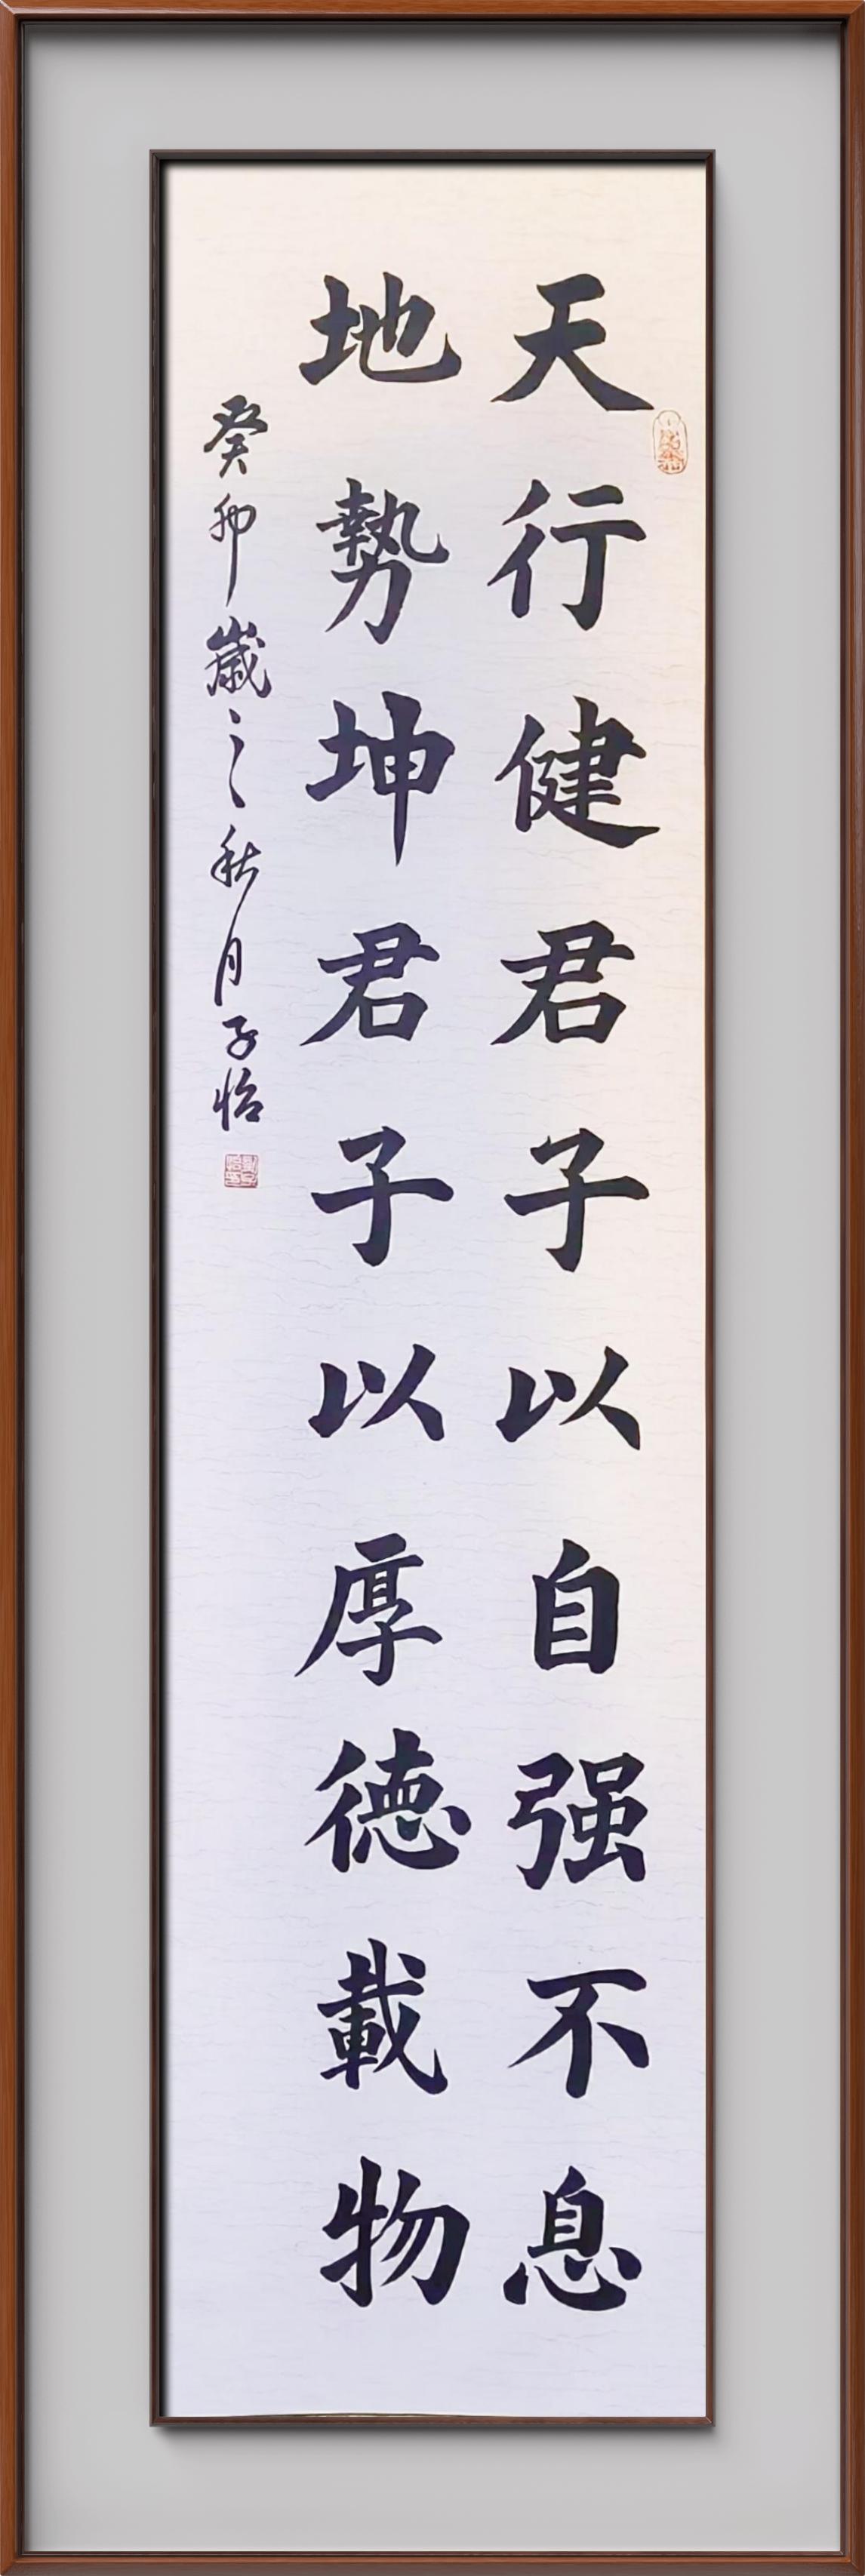 天行健君子以自强不息
地勢坤君子以厚德載物
癸卯歲之秋月子怡